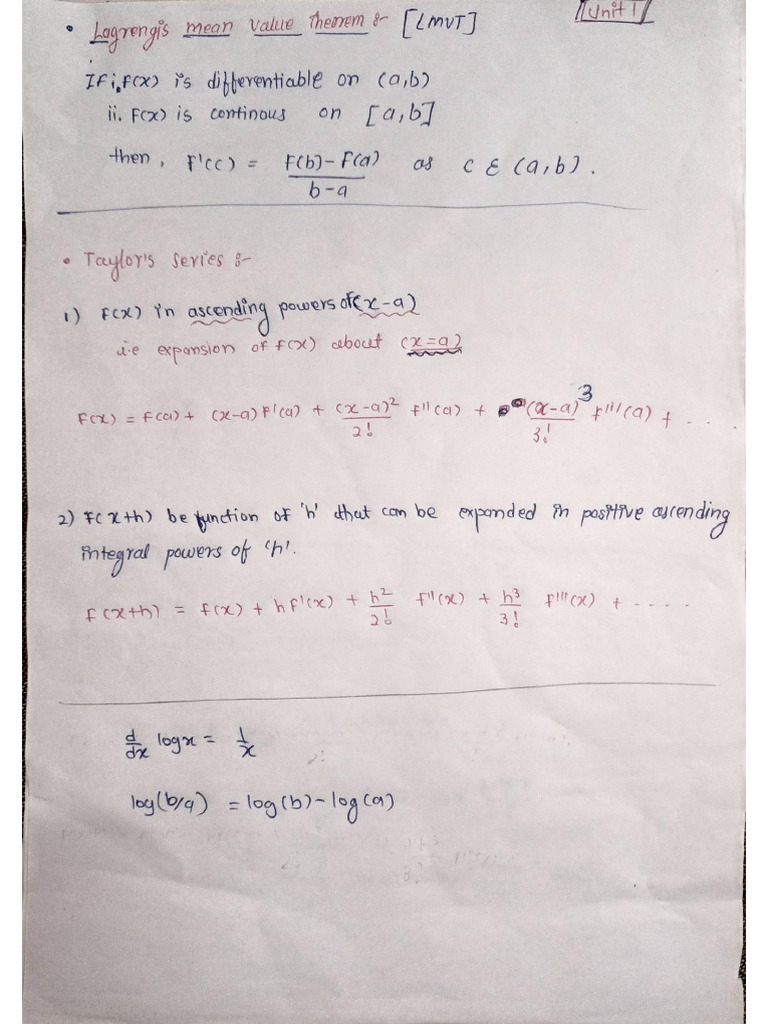 Unit 1
• Lagrengi's mean value theorem :- [LMVT]
If i. f(x) is differentiable on (a,b)
ii. f(x) is continous on [a,b]
then, f'(c) = f(b)-f(a) / b-a as c ε (a,b).
• Taylor's series :-
1) f(x) in ascending powers of (x-a)
i.e expansion of f(x) about (x=a)
f(x) = f(a) + (x-a) f'(a) + (x-a)²/2! f''(a) + (x-a)³/3! f'''(a) + ...
2) f(x+h) be function of 'h' that can be expanded in positive ascending
integral powers of 'h'.
f(x+h) = f(x) + h f'(x) + h²/2! f''(x) + h³/3! f'''(x) + ....
d/dx logx = 1/x
log(b/a) = log(b) - log(a)